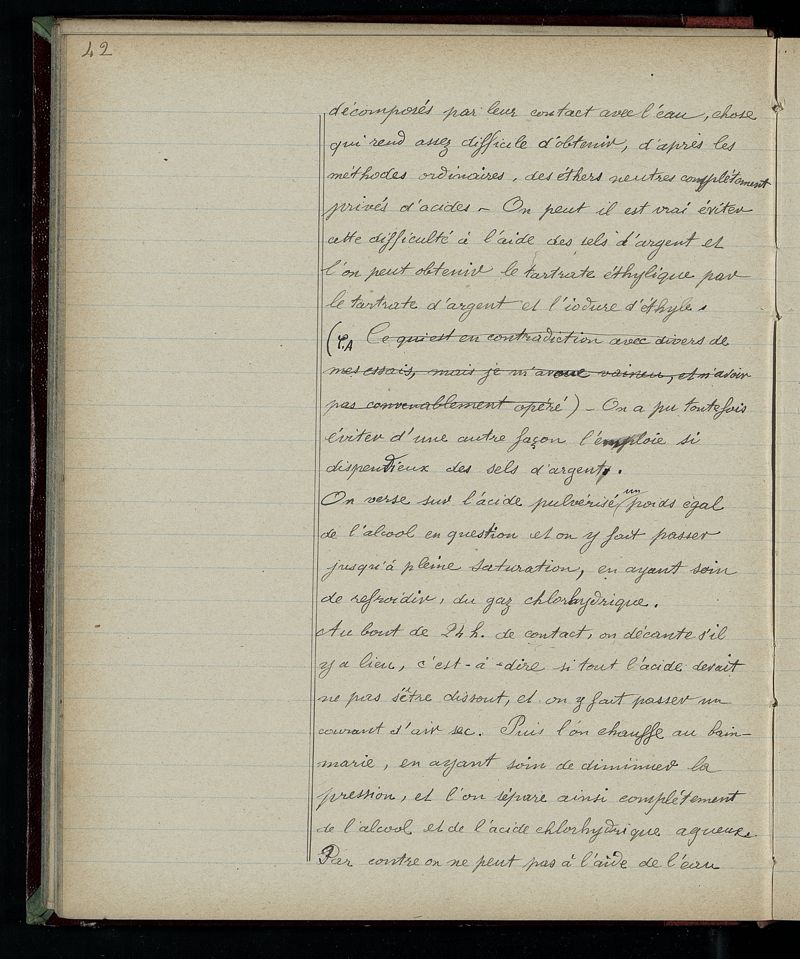 42
décomposés par leur contact avec l'éau, chose
qui rend assez difficile d'obtenir, d'après les
méthodes ordinaires, des éthers neutres complétement
privés d'acides - On peut il est vrai éviter
cette difficulté à l'aide des sels d'argent et
l'on peut obtenir le tartrate éthylique par
le tartrate d'argent et l'iodure d'éthyle.
( Ce qui est en contradiction avec divers de
mes essais, mais je m'avoue vaincu, et n'avoir
pas convenablement opéré) - On a pu toutefois
éviter d'une autre façon l'emploie si
dispendieux des sels d'argent.
On verse sur l'acide pulvérisé un poids égal
de l'alcool en question et on y fait passer
jusqu'à pleine saturation, en ayant soin
de refroidir, du gaz chlorhydrique.
Au bout de 24 h. de contact, on décante s'il
y a lieu, c'est-à-dire si tout l'acide devait
ne pas s'être dissout, et on y fait passer un
courant d'air sec. Puis l'on chauffe au bain-
marie, en ayant soin de diminuer la
pression, et l'on sépare ainsi complétement
de l'alcool et de l'acide chlorhydrique aqueux.
Par contre on ne peut pas à l'aide de l'eau